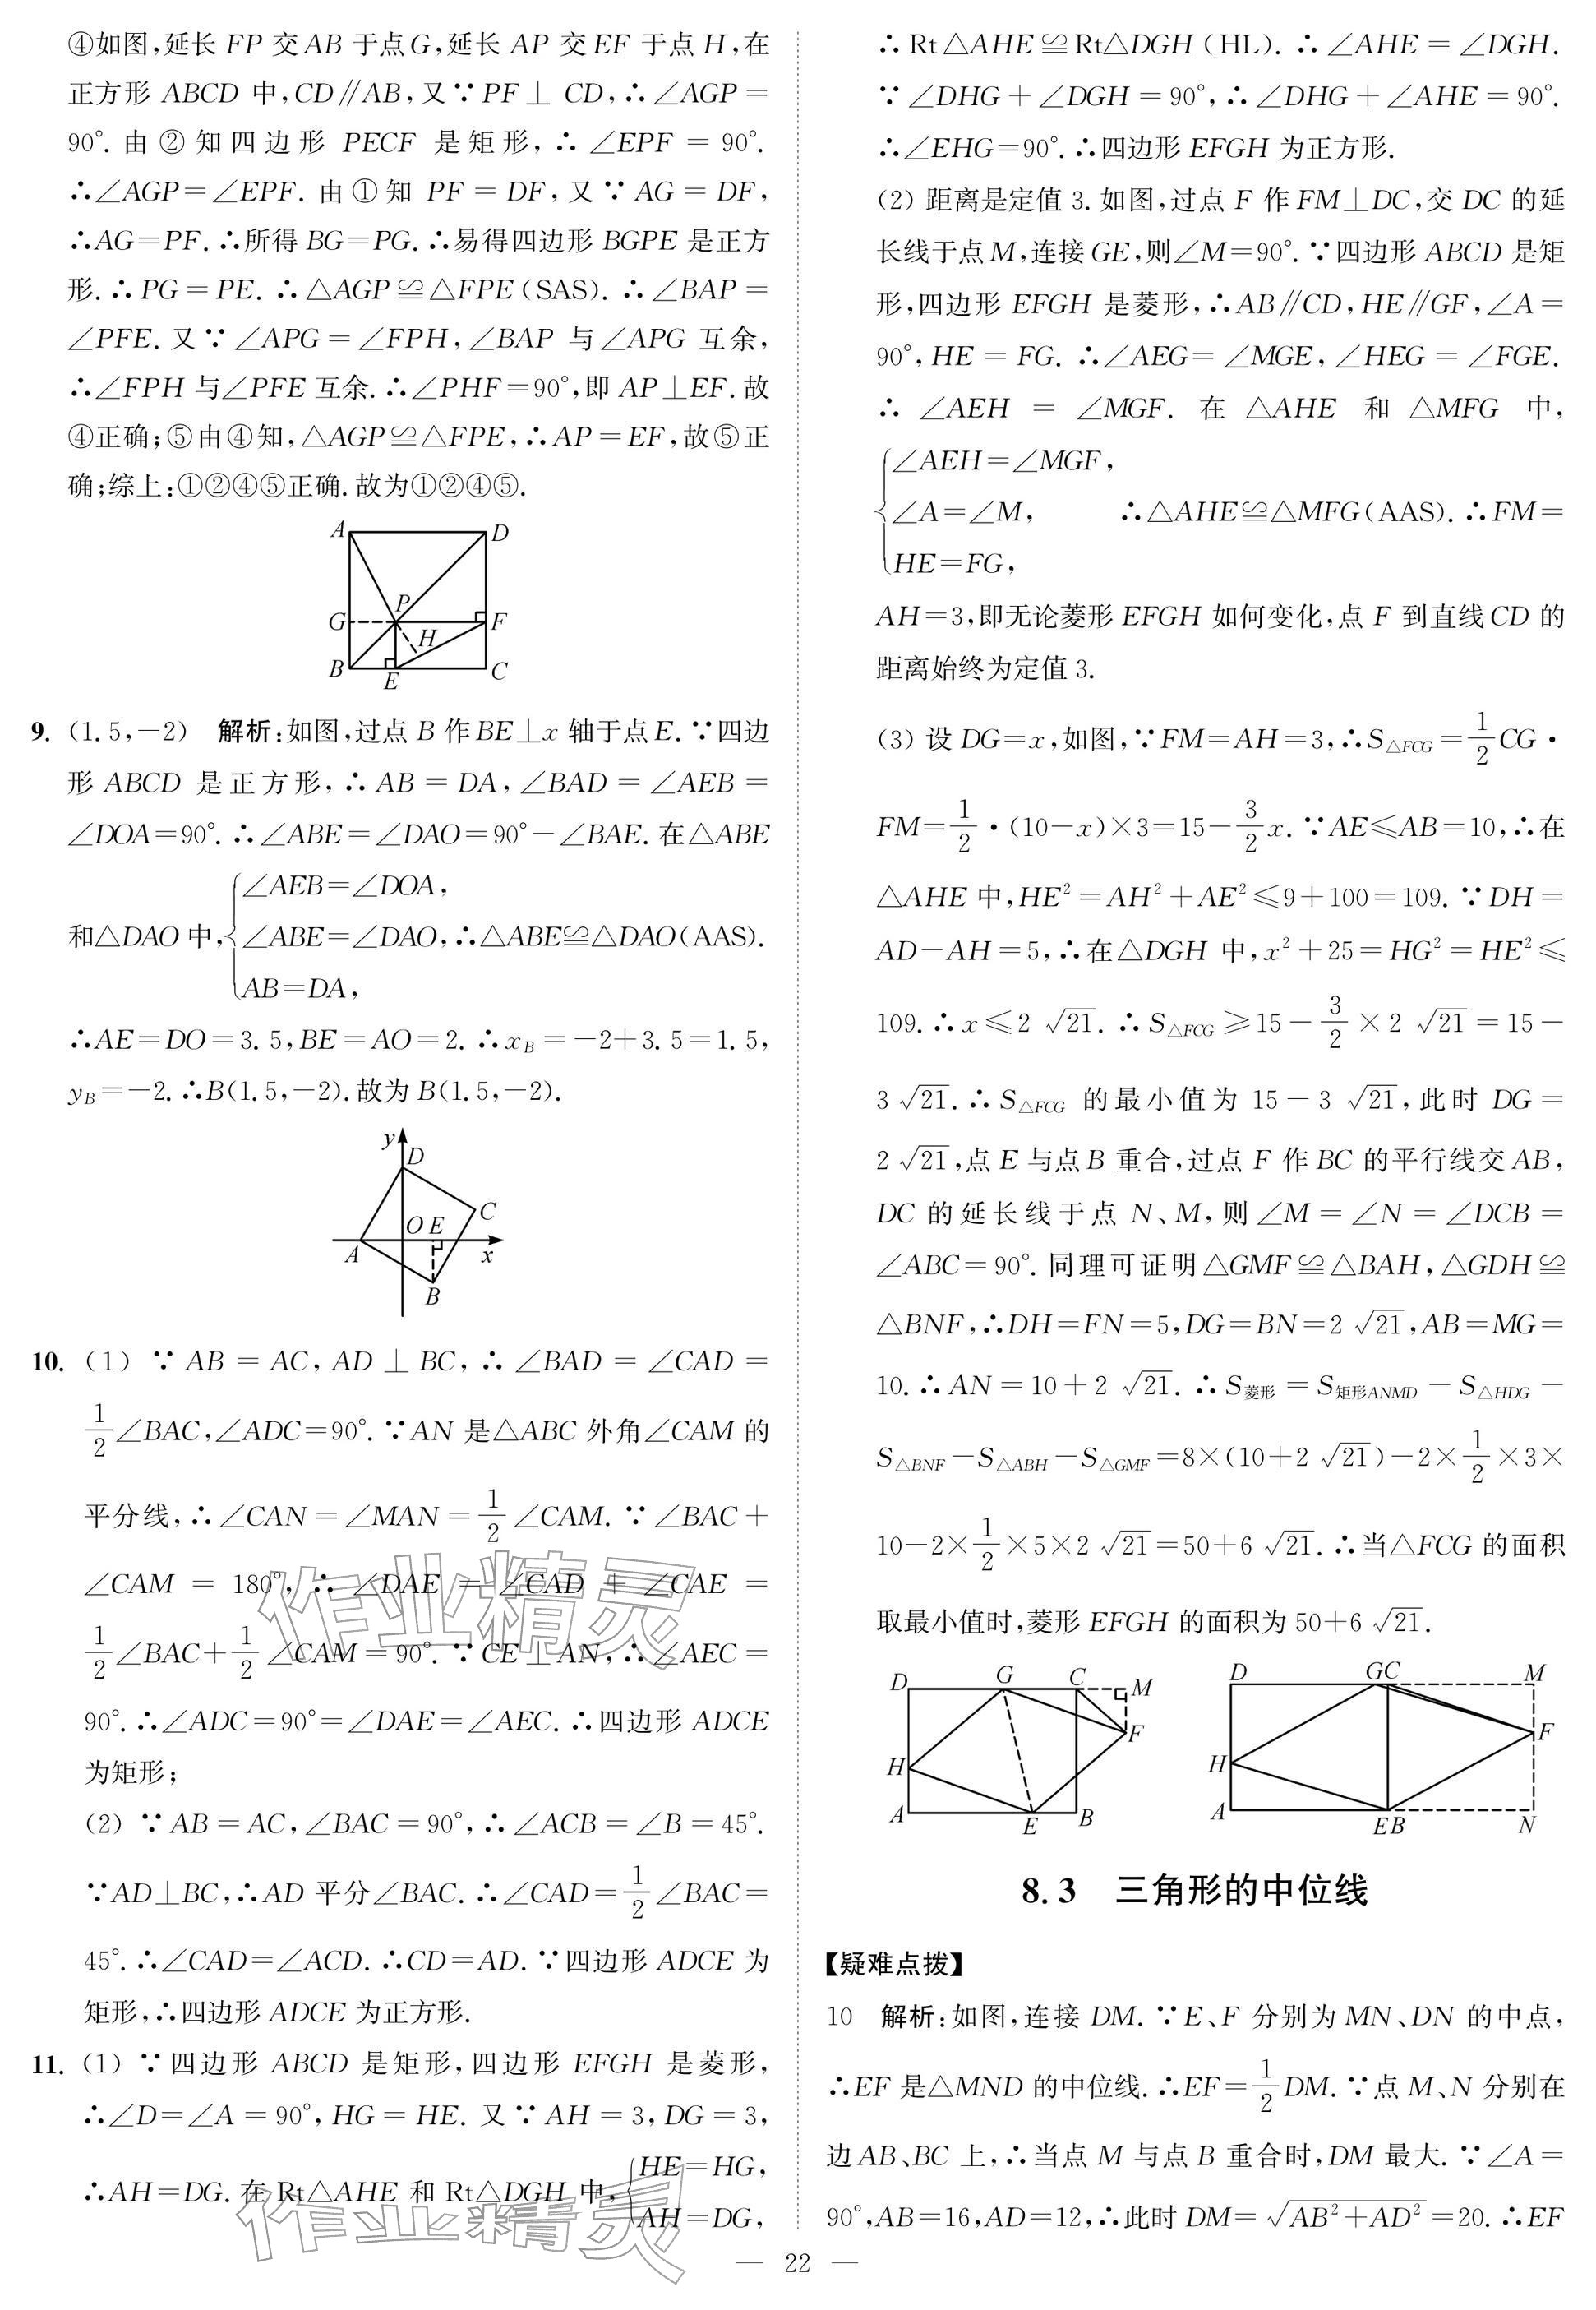 ④如图,延长 FP 交 AB 于点 G,延长 AP 交 EF 于点 H,在
正方形 ABCD 中,CD∥AB,又∵PF⊥ CD,∴∠AGP=
90°. 由②知四边形 PECF 是矩形,∴∠EPF=90°.
∴∠AGP=∠EPF. 由①知 PF=DF,又∵AG=DF,
∴AG=PF.∴所得 BG=PG.∴易得四边形 BGPE 是正方
形.∴PG=PE.∴△AGP≌△FPE(SAS).∴∠BAP=
∠PFE. 又∵∠APG=∠FPH,∠BAP 与∠APG 互余,
∴∠FPH 与∠PFE 互余.∴∠PHF=90°,即 AP⊥EF. 故
④正确;⑤由④知,△AGP≌△FPE,∴AP=EF,故⑤正
确;综上:①②④⑤正确.故为①②④⑤.
A
D
P
G
F
H
B
E
C
9. (1.5,-2) 解析:如图,过点 B 作 BE⊥x 轴于点 E.∵四边
形 ABCD 是正方形,∴AB=DA,∠BAD=∠AEB=
∠DOA=90°.∴∠ABE=∠DAO=90°-∠BAE. 在△ABE
∠AEB=∠DOA,
和△DAO 中,{∠ABE=∠DAO,∴△ABE≌△DAO(AAS).
AB=DA,
∴AE=DO=3.5,BE=AO=2.∴x_B=-2+3.5=1.5,
y_B=-2.∴B(1.5,-2).故为 B(1.5,-2).
y
D
C
O E
A
x
B
10. (1) ∵AB=AC,AD⊥BC,∴∠BAD=∠CAD=
1/2∠BAC,∠ADC=90°.∵AN 是△ABC 外角∠CAM 的
平分线,∴∠CAN=∠MAN=1/2∠CAM.∵∠BAC+
∠CAM=180°,∴∠DAE=∠CAD+∠CAE=
1/2∠BAC+1/2∠CAM=90°.∵CE⊥AN,∴∠AEC=
90°.∴∠ADC=90°=∠DAE=∠AEC.∴四边形 ADCE
为矩形;
(2) ∵AB=AC,∠BAC=90°,∴∠ACB=∠B=45°.
∵AD⊥BC,∴AD 平分∠BAC.∴∠CAD=1/2∠BAC=
45°.∴∠CAD=∠ACD.∴CD=AD.∵四边形 ADCE 为
矩形,∴四边形 ADCE 为正方形.
11. (1) ∵四边形 ABCD 是矩形,四边形 EFGH 是菱形,
∴∠D=∠A=90°,HG=HE. 又∵AH=3,DG=3,
∴AH=DG. 在 Rt△AHE 和 Rt△DGH 中,{HE=HG,
AH=DG,
∴Rt△AHE≌Rt△DGH(HL).∴∠AHE=∠DGH.
∵∠DHG+∠DGH=90°,∴∠DHG+∠AHE=90°.
∴∠EHG=90°.∴四边形 EFGH 为正方形.
(2) 距离是定值 3. 如图,过点 F 作 FM⊥DC,交 DC 的延
长线于点 M,连接 GE,则∠M=90°.∵四边形 ABCD 是矩
形,四边形 EFGH 是菱形,∴AB∥CD,HE∥GF,∠A=
90°,HE=FG.∴∠AEG=∠MGE,∠HEG=∠FGE.
∴∠AEH=∠MGF. 在△AHE 和△MFG 中,
∠AEH=∠MGF,
{∠A=∠M, ∴△AHE≌△MFG(AAS).∴FM=
HE=FG,
AH=3,即无论菱形 EFGH 如何变化,点 F 到直线 CD 的
距离始终为定值 3.
(3) 设 DG=x,如图,∵FM=AH=3,∴S△FCG=1/2CG·
FM=1/2·(10-x)×3=15-3/2x.∵AE≤AB=10,∴在
△AHE 中,HE²=AH²+AE²≤9+100=109.∵DH=
AD-AH=5,∴在△DGH 中,x²+25=HG²=HE²≤
109.∴x≤2√21.∴S△FCG≥15-3/2×2√21=15-
3√21.∴S△FCG 的最小值为 15-3√21,此时 DG=
2√21,点 E 与点 B 重合,过点 F 作 BC 的平行线交 AB,
DC 的延长线于点 N、M,则∠M=∠N=∠DCB=
∠ABC=90°. 同理可证明△GMF≌△BAH,△GDH≌
△BNF,∴DH=FN=5,DG=BN=2√21,AB=MG=
10.∴AN=10+2√21.∴S菱形=S矩形ANMD-S△HDG-
S△BNF-S△ABH-S△GMF=8×(10+2√21)-2×1/2×3×
10-2×1/2×5×2√21=50+6√21.∴当△FCG 的面积
取最小值时,菱形 EFGH 的面积为 50+6√21.
D G C M
F
H
A E B
D GC M
F
H
A EB N
8.3 三角形的中位线
【疑难点拨】
10 解析:如图,连接 DM.∵E、F 分别为 MN、DN 的中点,
∴EF 是△MND 的中位线.∴EF=1/2DM.∵点 M、N 分别在
边 AB、BC 上,∴当点 M 与点 B 重合时,DM 最大.∵∠A=
90°,AB=16,AD=12,∴此时 DM=√(AB²+AD²)=20.∴EF
— 22 —
作业精灵
作业精灵